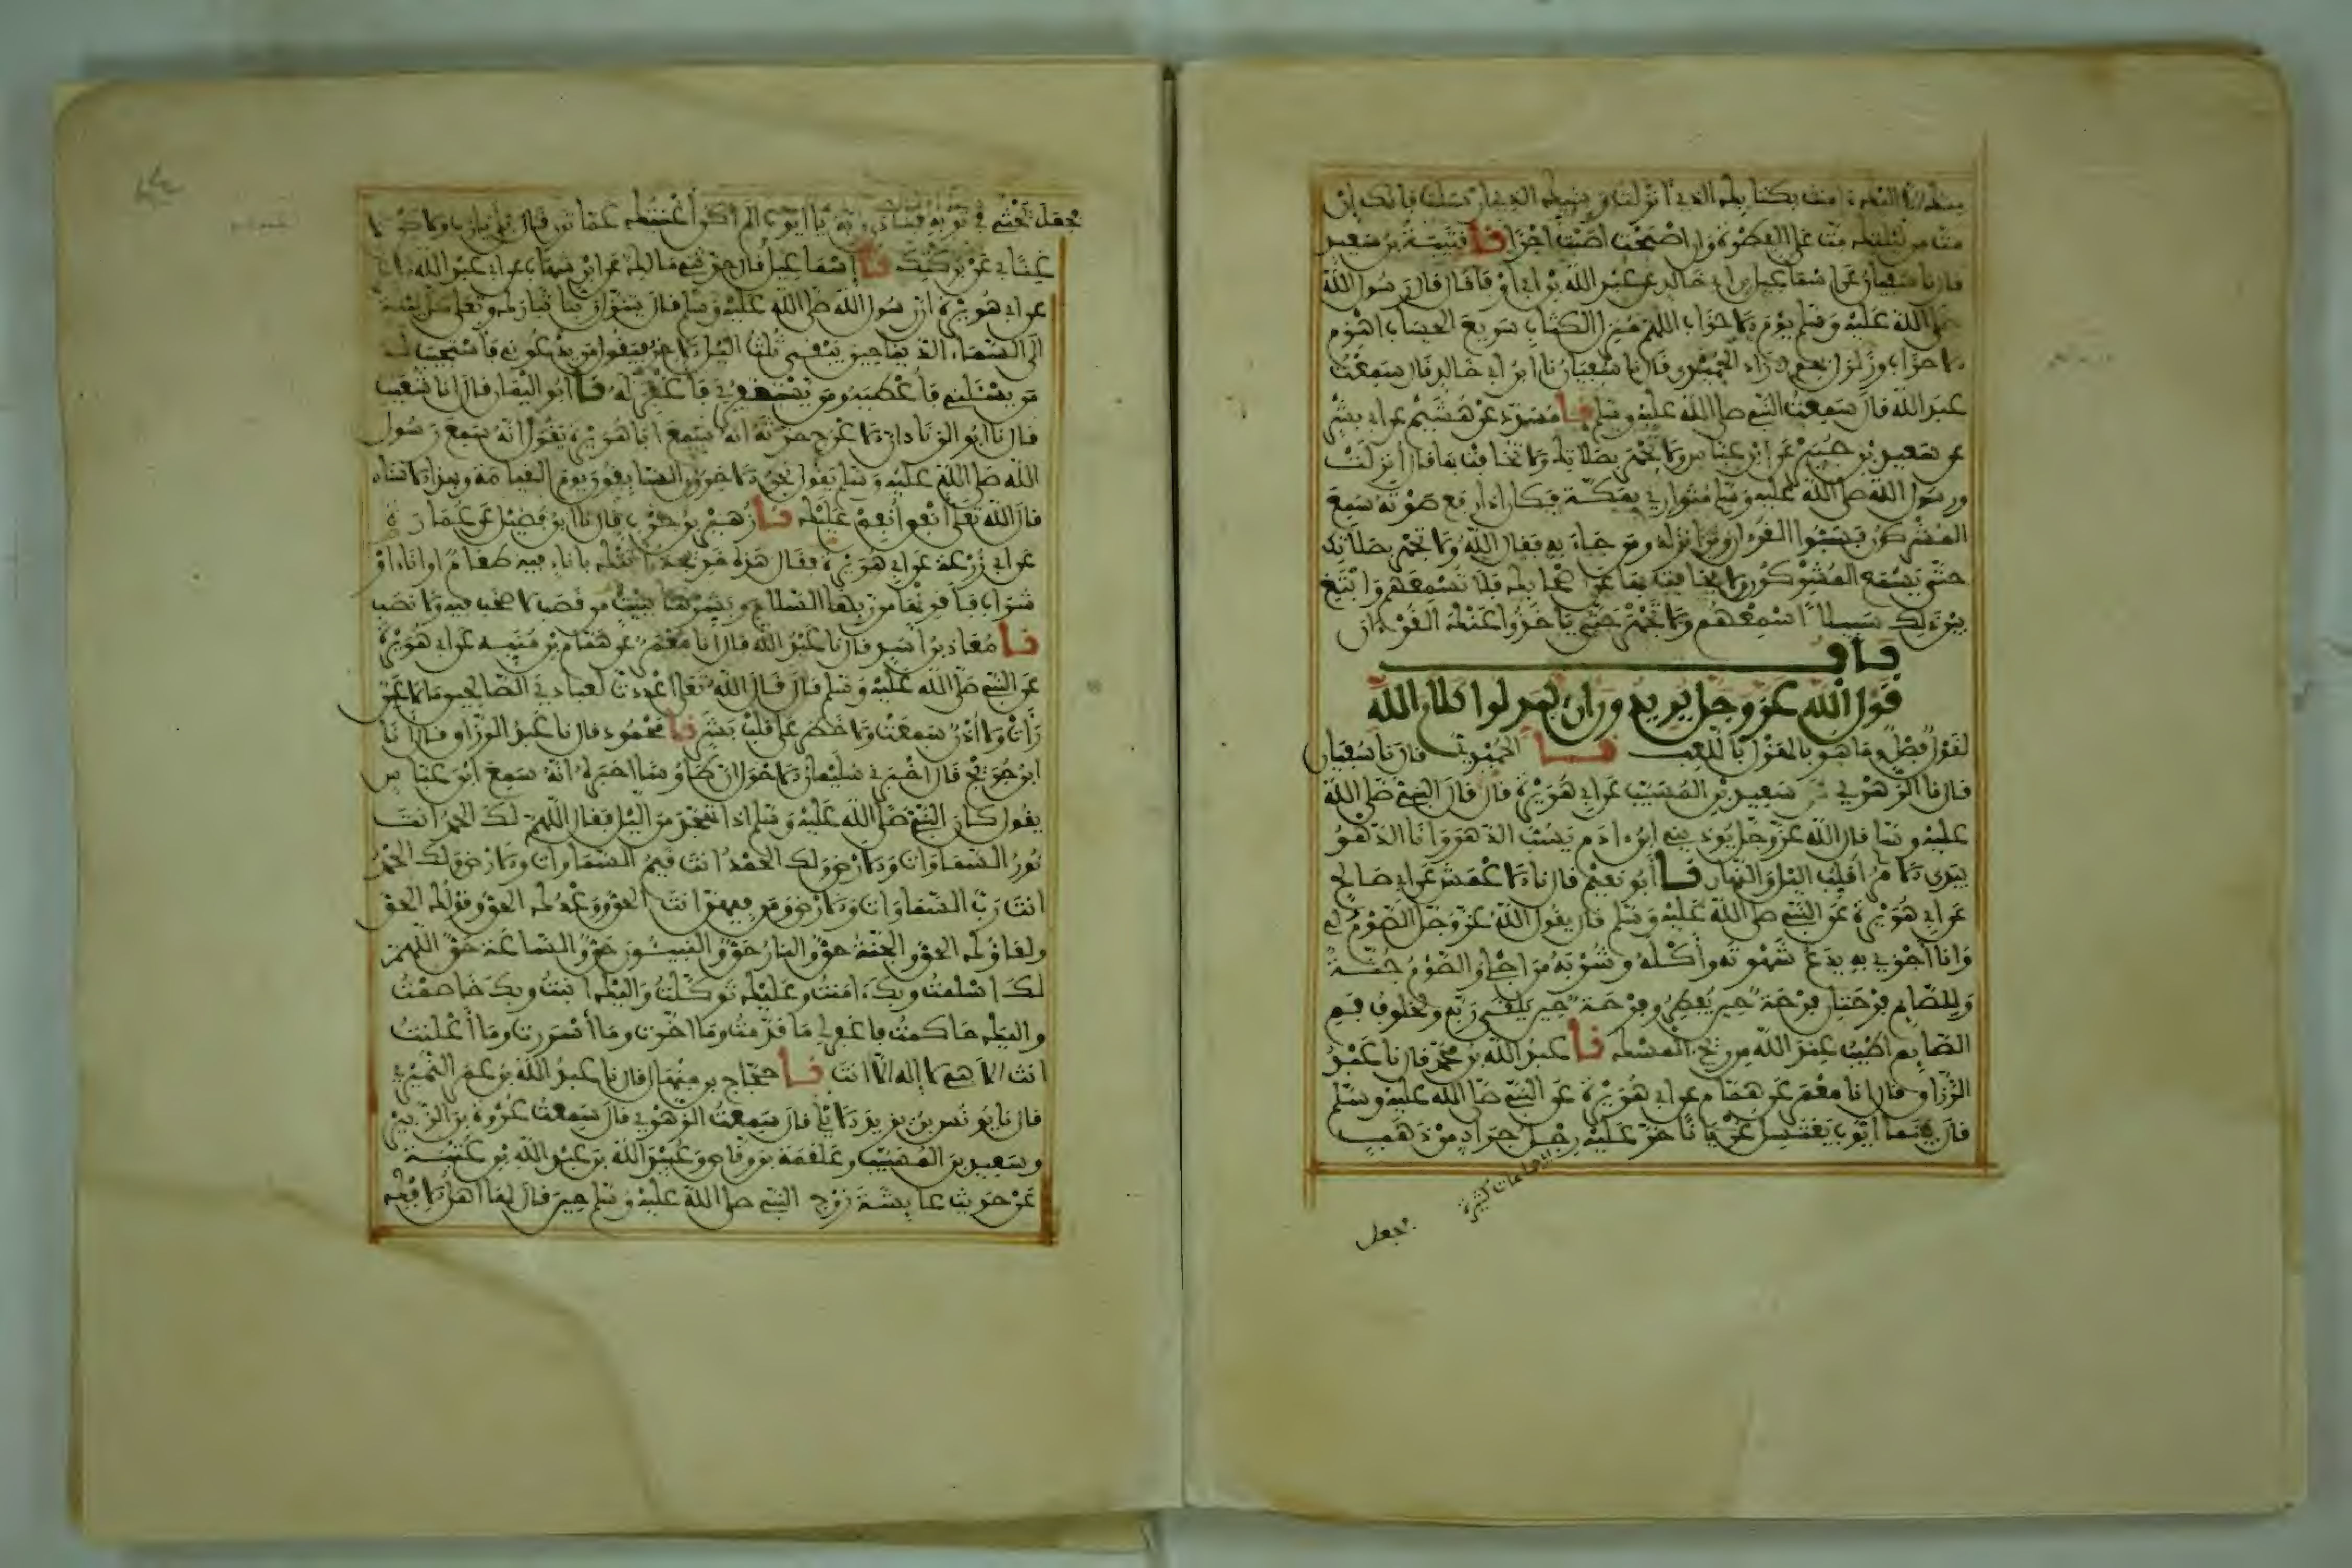 منك الا اليك امنت بكتابك الذي انزلت وبنبيك الذي ارسلت فانك ان
مت من ليلتك مت على الفطرة وان اصبحت اصبت اجرا نا قتيبة بن سعيد
قال نا سفيان عن اسماعيل بن ابي خالد عن عبد الله بن ابي اوفى قال قال رسول الله
صلى الله عليه وسلم يوم الاحزاب اللهم منزل الكتاب سريع الحساب اهزم
الاحزاب وزلزل بهم زاد الحميدي قال نا سفيان نا ابن ابي خالد قال سمعت
عبد الله قال سمعت النبي صلى الله عليه وسلم نا مسدد عن هشيم عن ابي بشر
عن سعيد بن جبير عن ابن عباس ولا تجهر بصلاتك ولا تخافت بها قال انزلت
ورسول الله صلى الله عليه وسلم متواري بمكة فكان اذا رفع صوته سمع
المشركون فسبوا القرءان ومن انزله ومن جاء به فقال الله ولا تجهر بصلاتك
حتى يسمع المشركون ولا تخافت بها عن اصحابك فلا تسمعهم وابتغ
بين ذلك سبيلا اسمعهم ولا تجهر حتى ياخذوا عنك القرءان
باب
قول الله عز وجل يريدون ان يبدلوا كلام الله
لقول فصل وما هو بالهزل باللعب نا الحميدي قال نا سفيان
قال نا الزهري عن سعيد بن المسيب عن ابي هريرة قال قال النبي صلى الله
عليه وسلم قال الله عز وجل يوذيني ابن ءادم يسب الدهر وانا الدهر
بيدي الامر اقلب اليل والنهار نا ابو نعيم قال نا الاعمش عن ابي صالح
عن ابي هريرة عن النبي صلى الله عليه وسلم قال يقول الله عز وجل الصوم لي
وانا اجزي به يدع شهوته واكله وشربه من اجلي والصوم جنة
وللصايم فرحتان فرحة حين يفطر وفرحة حين يلقى ربه ولخلوف فم
الصايم اطيب عند الله من ريح المسك نا عبد الله بن محمد قال نا عبد
الرزاق قال انا معمر عن همام عن ابي هريرة عن النبي صلى الله عليه وسلم
قال بينما ايوب يغتسل عريانا خر عليه رجل جراد من ذهب
يجعل
يجعل يحثي في ثوبه فنادى ربه يا ايوب الم اكن اغنيتك عما ترى قال بلى يا رب ولاكن لا
غنا بي عن بركتك نا اسماعيل قال حدثني مالك عن ابن شهاب عن ابي عبد الله
عن ابي هريرة ان رسول الله صلى الله عليه وسلم قال يتنزل ربنا تبارك وتعلى كل ليلة
الى السماء الدنيا حين يبقى ثلث اليل الاخر فيقول من يدعوني فاستجيب له
من يسئلني فاعطيه ومن يستغفرني فاغفر له نا ابو اليمان قال انا شعيب
قال نا ابو الزناد ان الاعرج حدثه انه سمع ابا هريرة يقول انه سمع رسول
الله صلى الله عليه وسلم يقول نحن الاخرون السابقون يوم القيامة وبهذا الاسناد
قال الله تعلى انفق انفق عليك نا زهير بن حرب قال نا ابن فضيل عن عمارة
عن ابي زرعة عن ابي هريرة فقال هذه خديجة اتتك باناء فيه طعام او اناء او
شراب فاقرئها من ربها السلام وبشرها ببيت من قصب لا صخب فيه ولا نصب
نا معاذ بن اسد قال نا عبد الله قال انا معمر عن همام بن منبه عن ابي هريرة
عن النبي صلى الله عليه وسلم قال قال الله تعلى اعددت لعبادي الصالحين ما لا عين
رات ولا اذن سمعت ولا خطر على قلب بشر نا محمود قال نا عبد الرزاق قال انا
ابن جريج قال اخبرني سليمان الاحول ان طاوسا اخبره انه سمع ابن عباس
يقول كان النبي صلى الله عليه وسلم اذا تهجد من اليل فقال اللهم لك الحمد انت
نور السماوات والارض ولك الحمد انت قيم السماوات والارض ولك الحمد
انت رب السماوات والارض ومن فيهن انت الحق ووعدك الحق وقولك الحق
ولقاؤك الحق والجنة حق والنار حق والنبيئون حق والساعة حق اللهم
لك اسلمت وبك ءامنت وعليك توكلت واليك انبت وبك خاصمت
واليك حاكمت فاغفر لي ما قدمت وما اخرت وما اسررت وما اعلنت
انت الاهي لا اله الا انت نا حجاج بن منهال قال نا عبد الله بن عمر النميري
قال نا يونس بن يزيد الايلي قال سمعت الزهري قال سمعت عروة بن الزبير
وسعيد بن المسيب وعلقمة بن وقاص وعبيد الله بن عبد الله بن عتبة
عن حديث عايشة زوج النبي صلى الله عليه وسلم حين قال لها اهل الافك